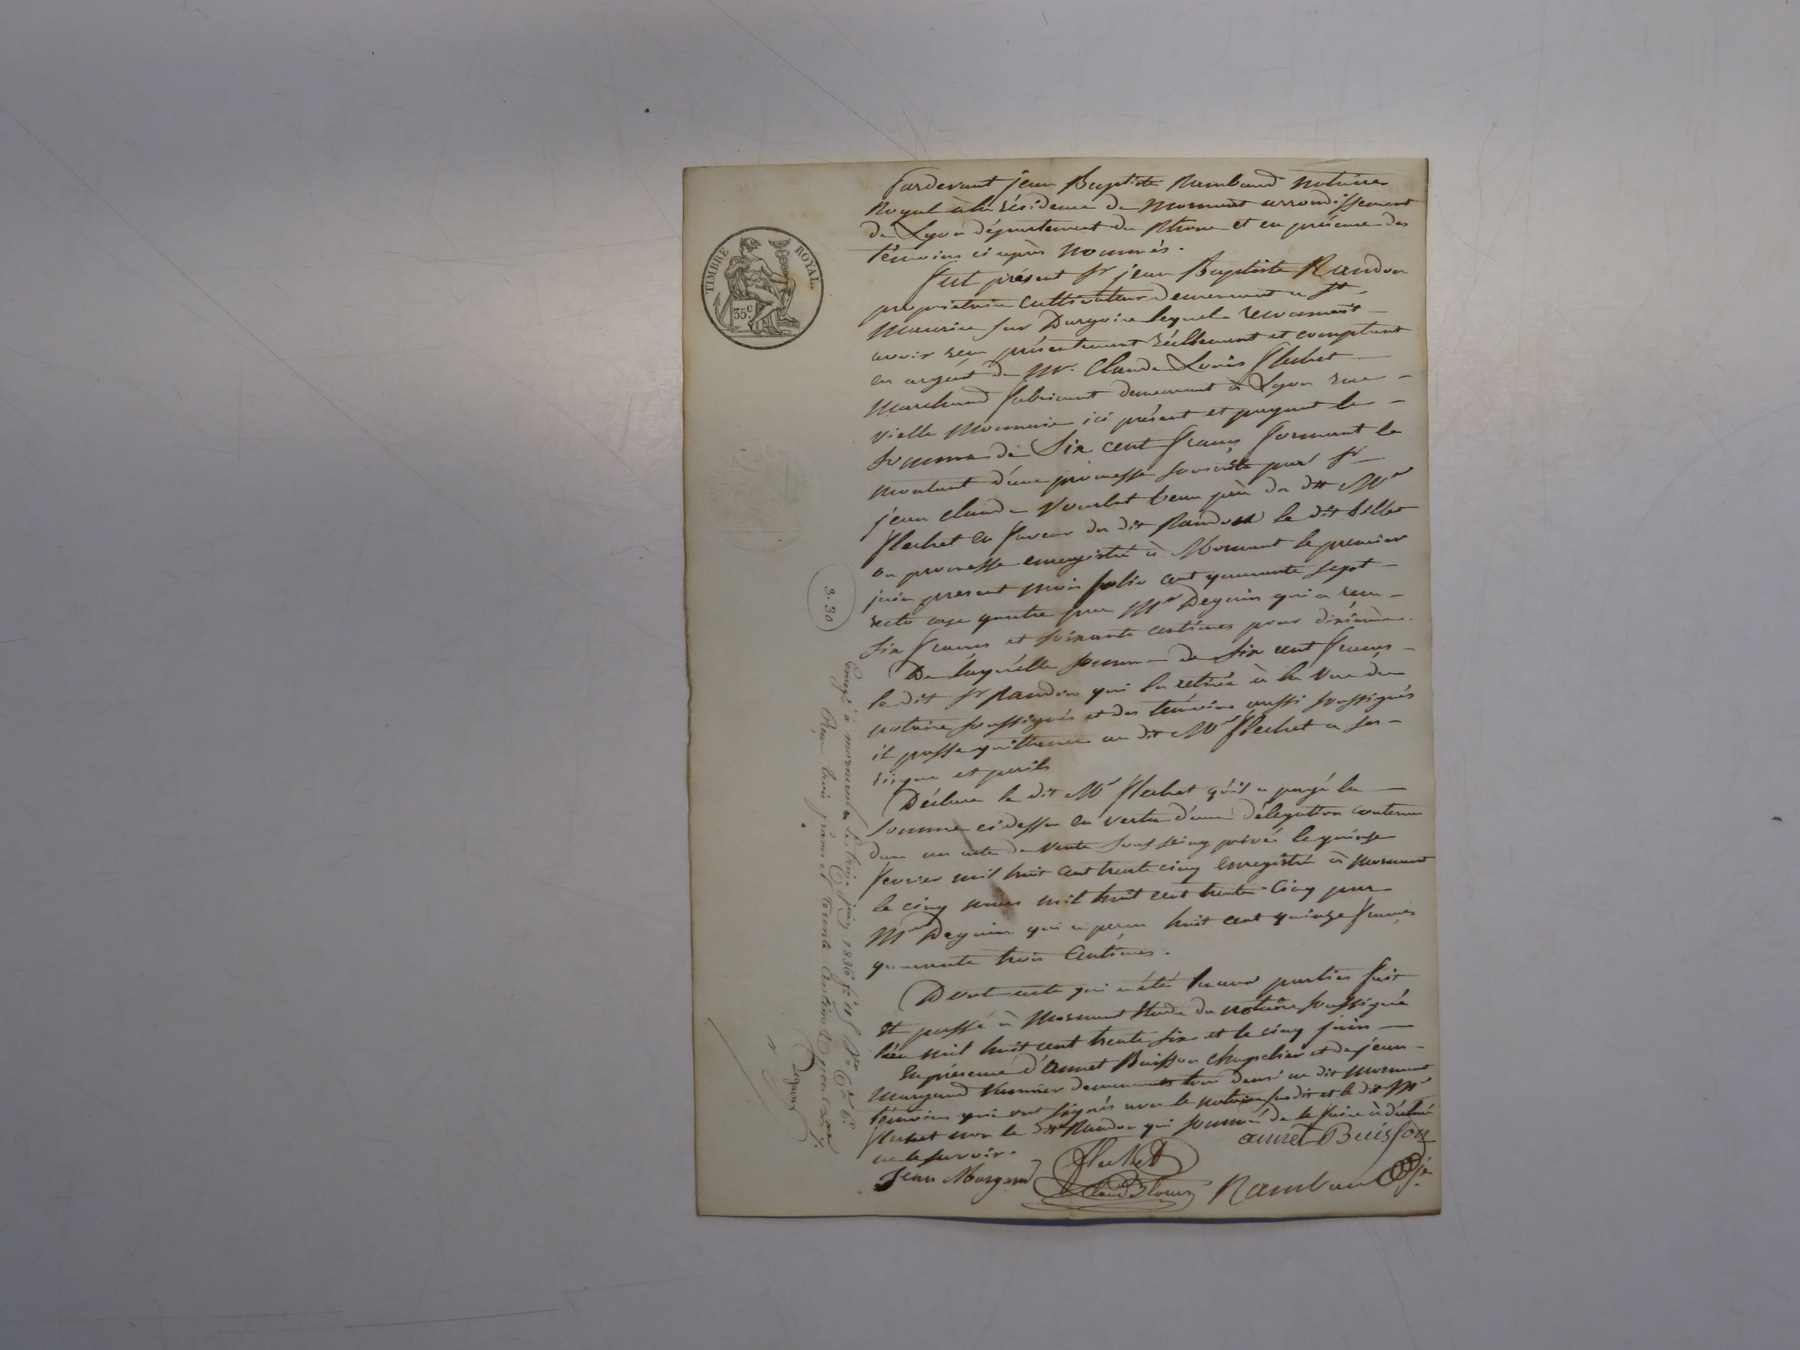 TIMBRE ROYAL.
35c.
Pardevant jean Baptiste Rambaud notaire
Royal à la résidence de Mornant arrondissement
de Lyon département du Rhone et en présence des
témoins ci après nommés.
Fut présent Sr jean Baptiste Randon
propriétaire cultivateur demeurant a St
Maurice sur Dargoire lequel reconnait
avoir reçu présentement réellement et comptant
en argent de Mr. Claude Louis Flechet
Marchand fabricant demeurant à Lyon rue
vielle Monnaie ici présent et payant la
somme de Six cent francs formant le
montant d'une promesse souscrite par Sr
jean claude beau père du dit Mr
flechet en faveur du dit Randon le dit billet
ou promesse enregistré à Mornant le premier
juin present mois folio cent quarante sept
recto case quatre par Mr Deguin qui a reçu
six francs et soixante centimes pour dixième.
De laquelle somme de six cent francs
le dit Sr Randon qui l'a retirée à la vue du
notaire soussignés et des témoins aussi soussignés
il passe quittance au dit Mr flechet a ses
risque et perils
Déclare le dit Mr flechet qu'il a payé la
somme cidessu en vertu d'une délégation contenue
dans un acte de vente sous seing privé le quinze
fevrier mil huit cent trente cinq enregistré à Mornant
le cinq mars mil huit cent trente cinq par
Mr Deguin qui a perçu huit cent quinze francs
quarante trois Centimes.
Dont acte qui a été lu aux parties fait
et passé à Mornant Etude du notaire soussigné
l'an mil huit cent trente six et le cinq juin
En présence d'annet Buisson chapelier et de jean
Margand demeurants tou deux au dit Mornant
témoins qui ont signés avec le notaire susdit et le dit Mr
flechet non le dit Randon qui sommé de le faire à déclaré
ne le savoir.
annet Buisson
Jean Margand
Flechet
Claude Louis
Rambaud
3.30
Enregé à mornant le treize juin 1836 fo 151 Vo Cse 6.
Reçu trois francs et trente centimes dixième compris.
Deguin